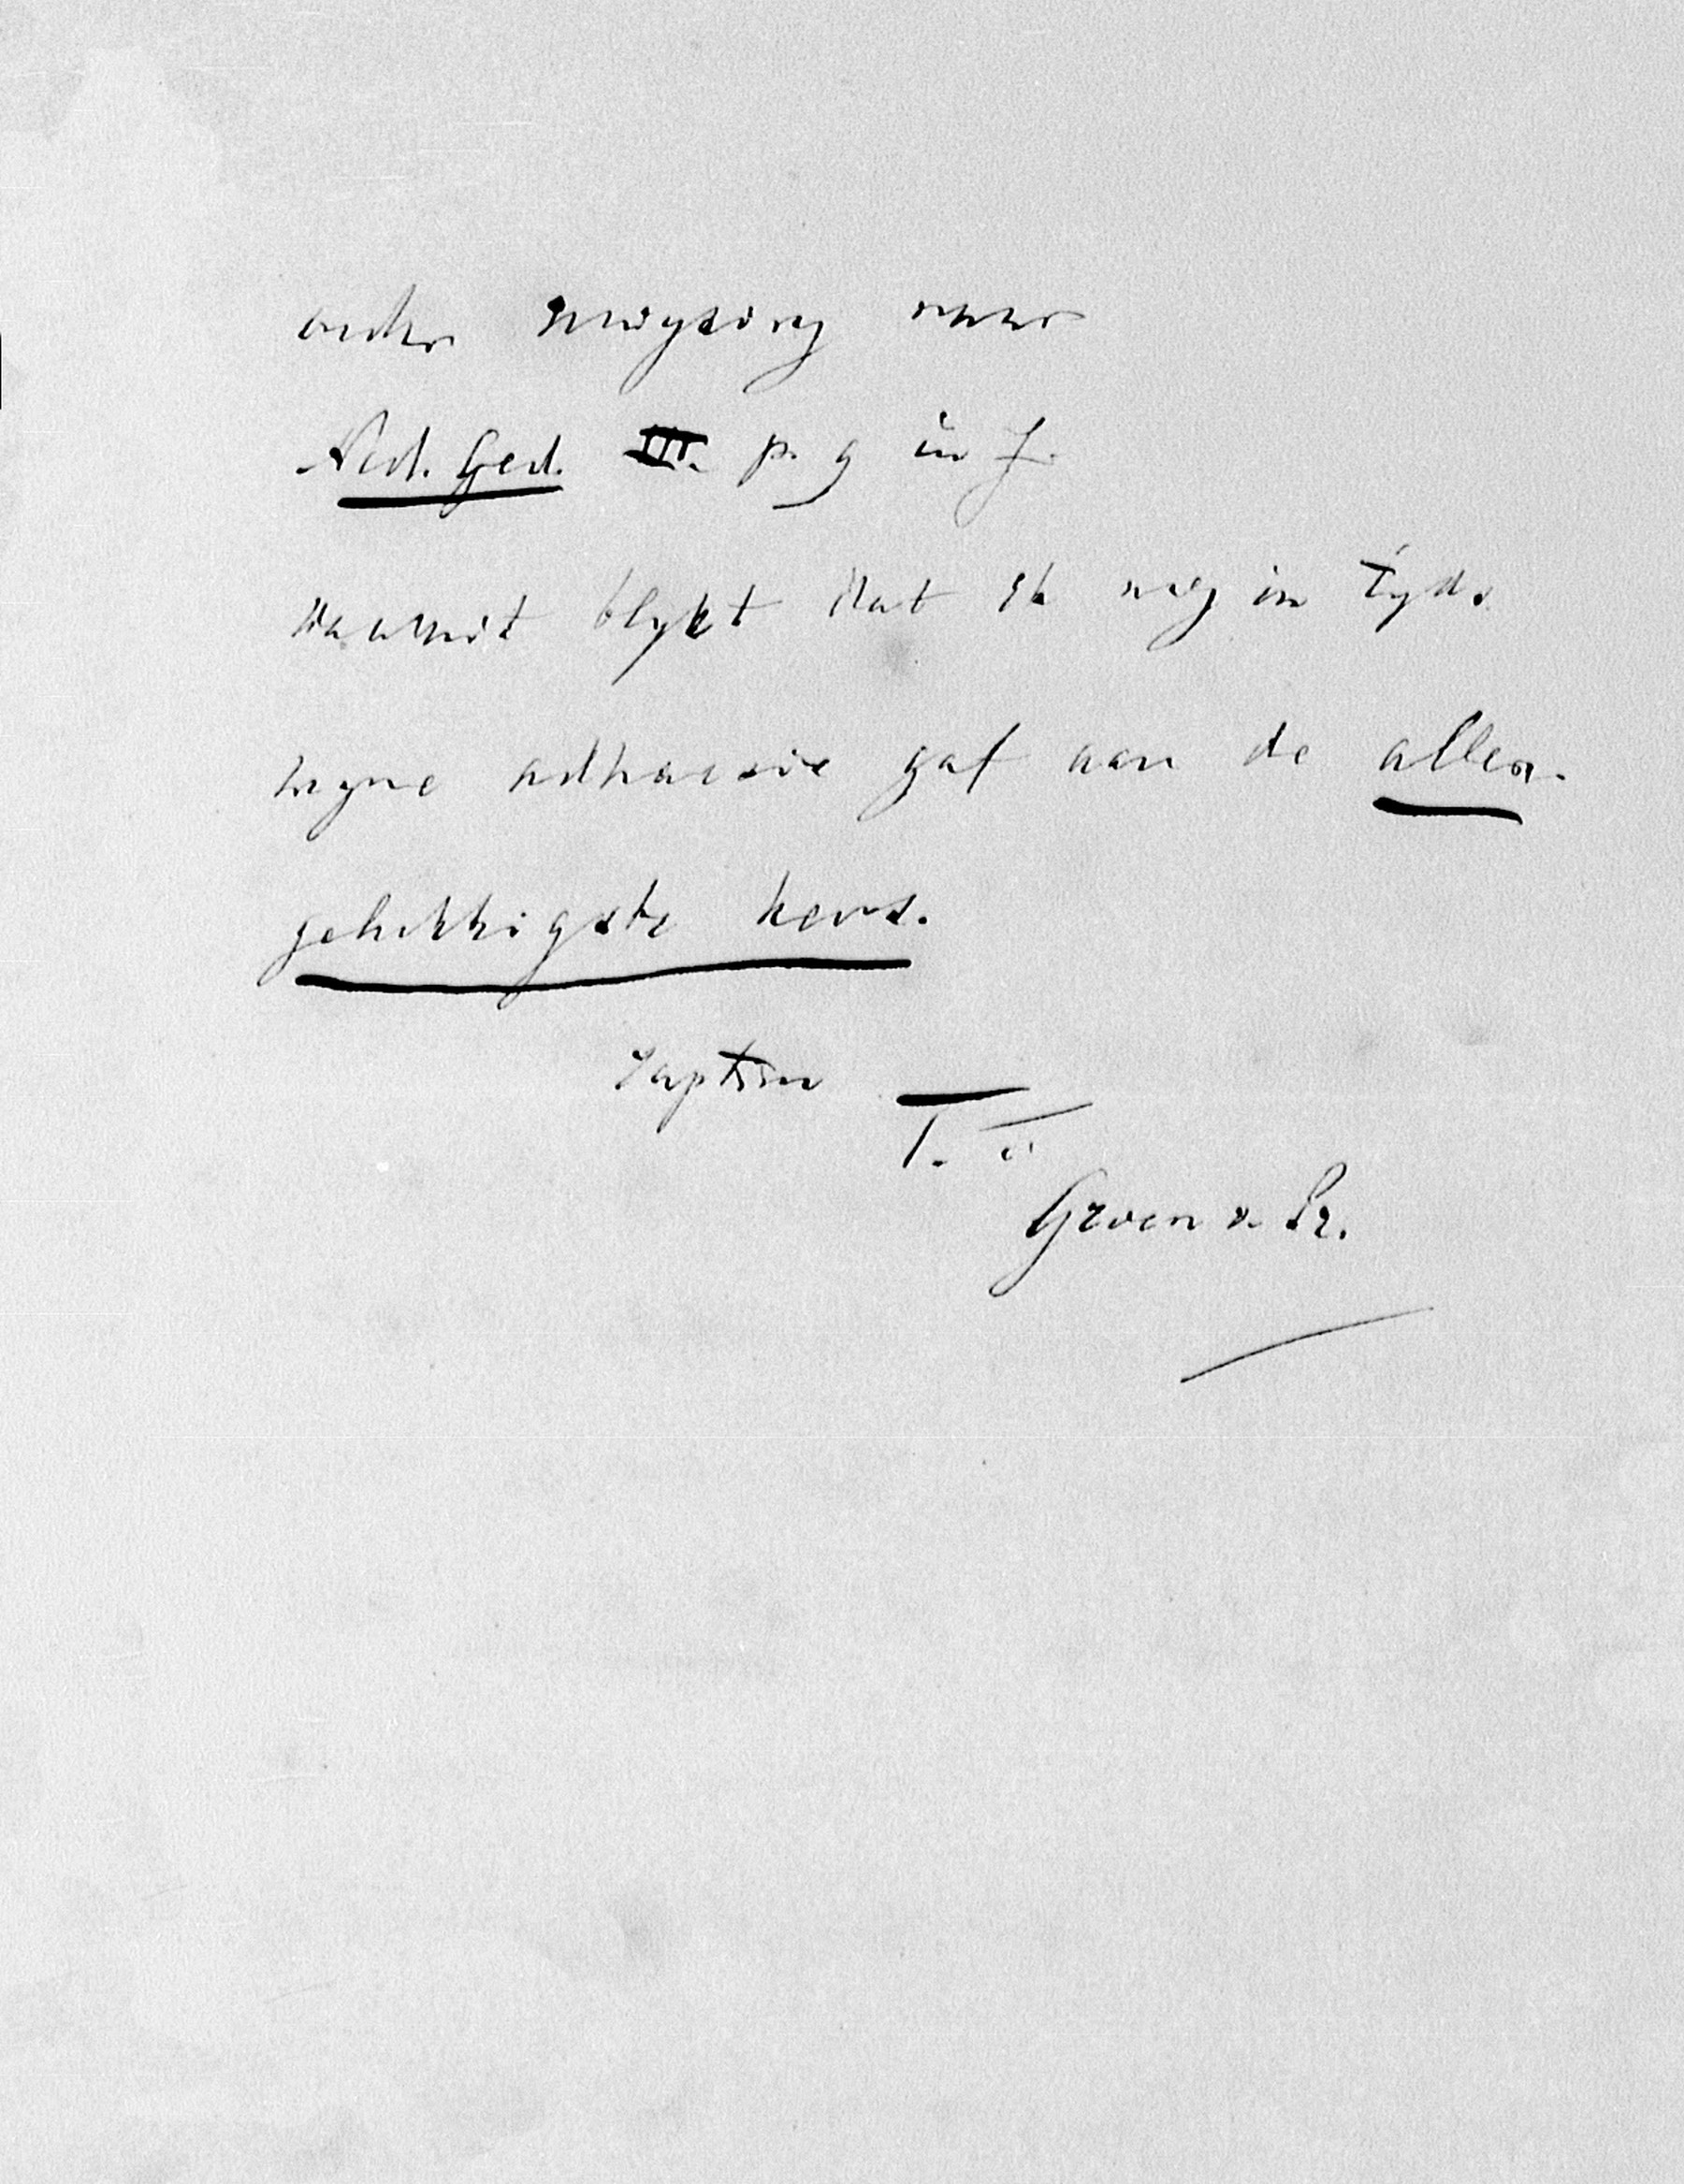 onder verwyzing naar
Ned. Ged. III. p. 9 in f.
waaruit blykt dat ik nog in tyds
myne adhaesie gaf aan de aller-
gelukkigste keus.
Raptim
T. à
Groen v. Pr.